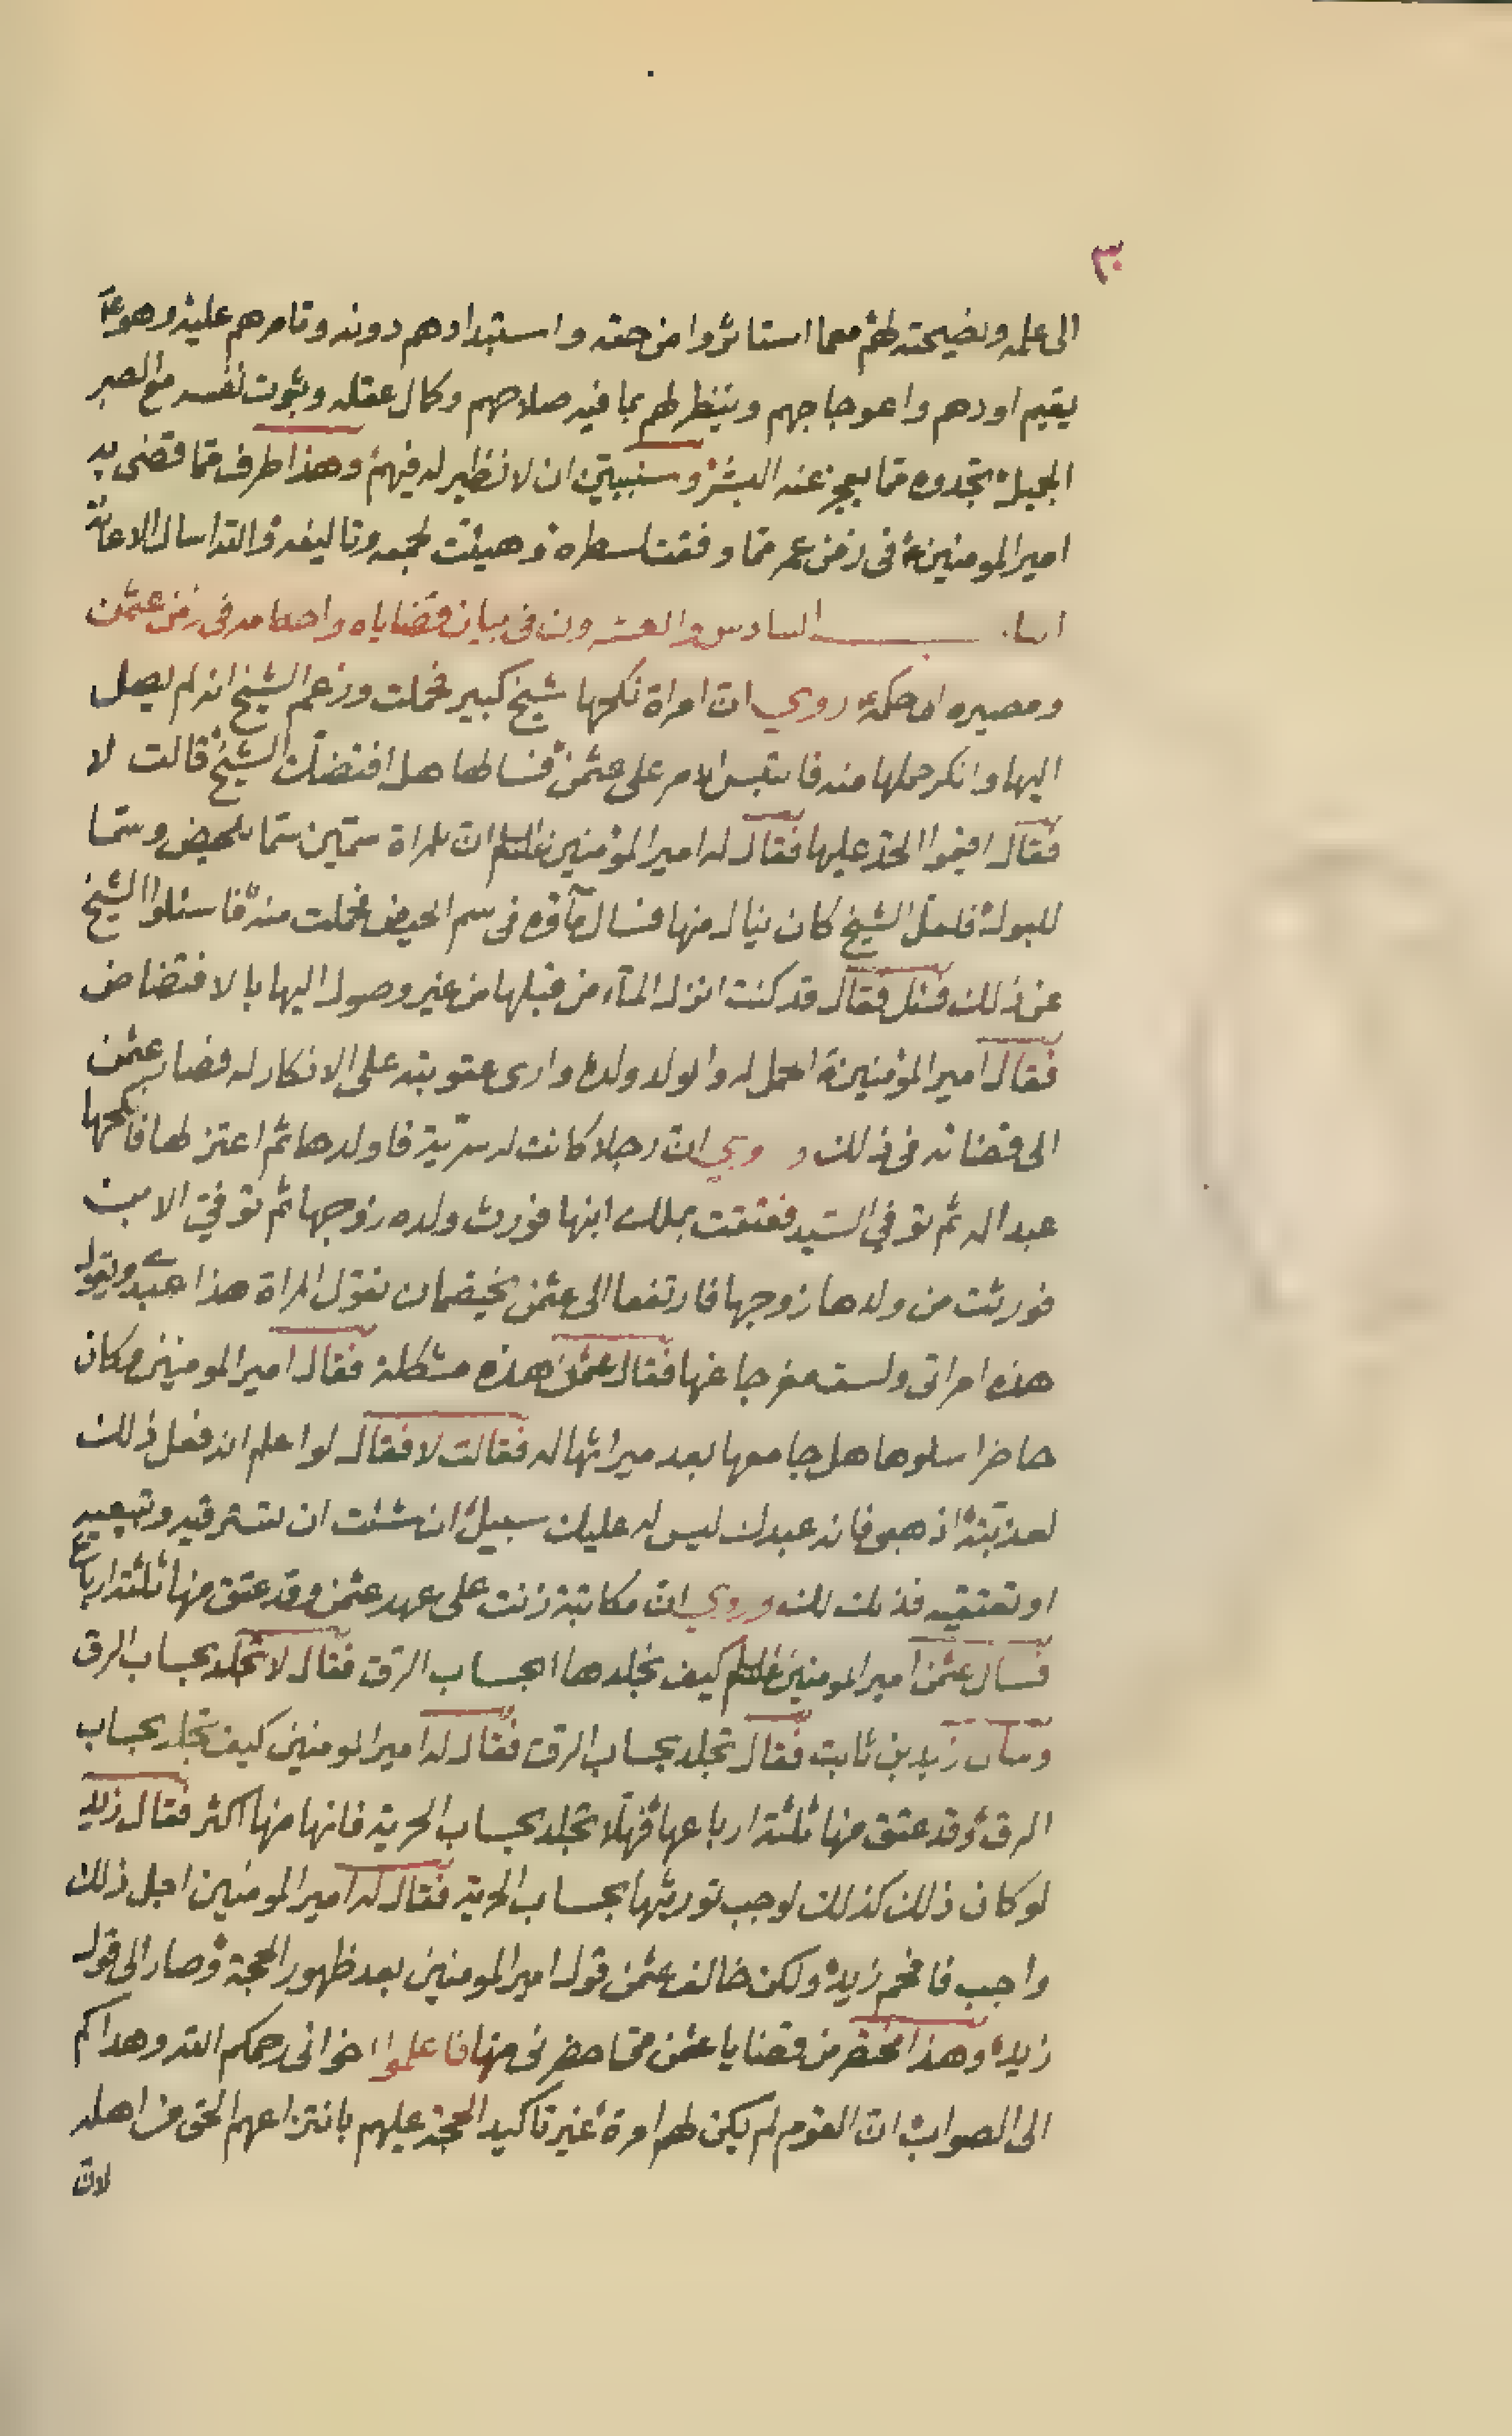 ٣٠
الى علمه ونصيحته لهم معما استاثروا من حقه واستبدادهم دونه وتامرهم عليه وهو ع
يقيم اودهم واعوجاجهم وينظر لهم بما فيه صلاحهم وكمال عقله وثبوت نفسه مع الصبر
الجميل تجدوه مما يعجز عنه البشر وسنبين ان لا نظير له فيهم وهذا طرف مما قضى به
امير المومنين ع فى زمن عمر مما وفقنا لسطره وهيئت لجمعه وتاليفه والله اسال الاعانة
الباب السادس والعشرون فى بيان قضاياه واحكامه فى زمن عثمن
ومصيره الى حكمه روي ان امراة نكحها شيخ كبير فحملت وزعم الشيخ انه لم يصل
اليها وانكر حملها منه فالتبس الامر على عثمن فسالها هل افتضك الشيخ قالت لا
فقال اقيموا الحد عليها فقال له امير المؤمنين عليه السلم ان للمراة سمين سما للحيض وسما
للبول فلعل الشيخ كان ينال منها فسال مآؤه فى سم الحيض فحملت منه فاسئلوا الشيخ
عن ذلك فسئل فقال قد كنت انزل المآء من قبلها من غير وصول اليها بالافتضاض
فقال امير المؤمنين ع الحمل له والولد ولده وارى عقوبته على الانكار له فصار عثمن
الى قضائه فى ذلك وروي ان رجلا كانت له سرية فاولدها ثم اعتزلها فانكحها
عبدا له ثم توفي السيد فعتقت بملك ابنها فورث ولده زوجها ثم توفي الابن
فورثت من ولدها زوجها فارتفعا الى عثمن يختصمان تقول المراة هذا عبدي ويقول
هذه امراتى ولست مفرجا عنها فقال عثمن هذه مشكلة فقال امير المومنين وكان
حاضرا سلوها هل جامعها بعد ميراثها له فقالت لا فقال لو اعلم انه فعل ذلك
لعذبته اذهبى فانه عبدك ليس له عليك سبيل ان شئت ان تسترقيه وتبيعيه
او تعتقيه فذلك لك وروي ان مكاتبة زنت على عهد عثمن وقد عتق منها ثلثة ارباع
فسال عثمن امير المومنين عليه السلم كيف نجلدها ابحساب الرق فقال لا تجلد بحساب الرق
وسال زيد بن ثابت فقال تجلد بحساب الرق فقال له امير المومنين كيف تجلد بحساب
الرق وقد عتق منها ثلثة ارباعها فهلا تجلد بحساب الحرية فانها منها اكثر فقال زيد
لو كان ذلك كذلك لوجب توريثها بحساب الحرية فقال له امير المومنين اجل ذلك
واجب فافحم زيد ولكن خالف عثمن قول امير المومنين بعد ظهور الحجة وصار الى قول
زيد وهذا مختصر من قضايا عثمن مما حضرنى منها فاعلموا اخوانى رحمكم الله وهداكم
الى الصواب ان القوم لم يكن لهم امرة غير تاكيد الحجة عليهم بانتزاعهم الحق من اهله
لان